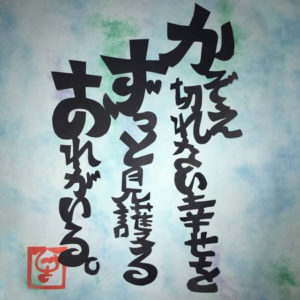 かぞえ切れない幸せを
ずっと見護る
おれがいる。